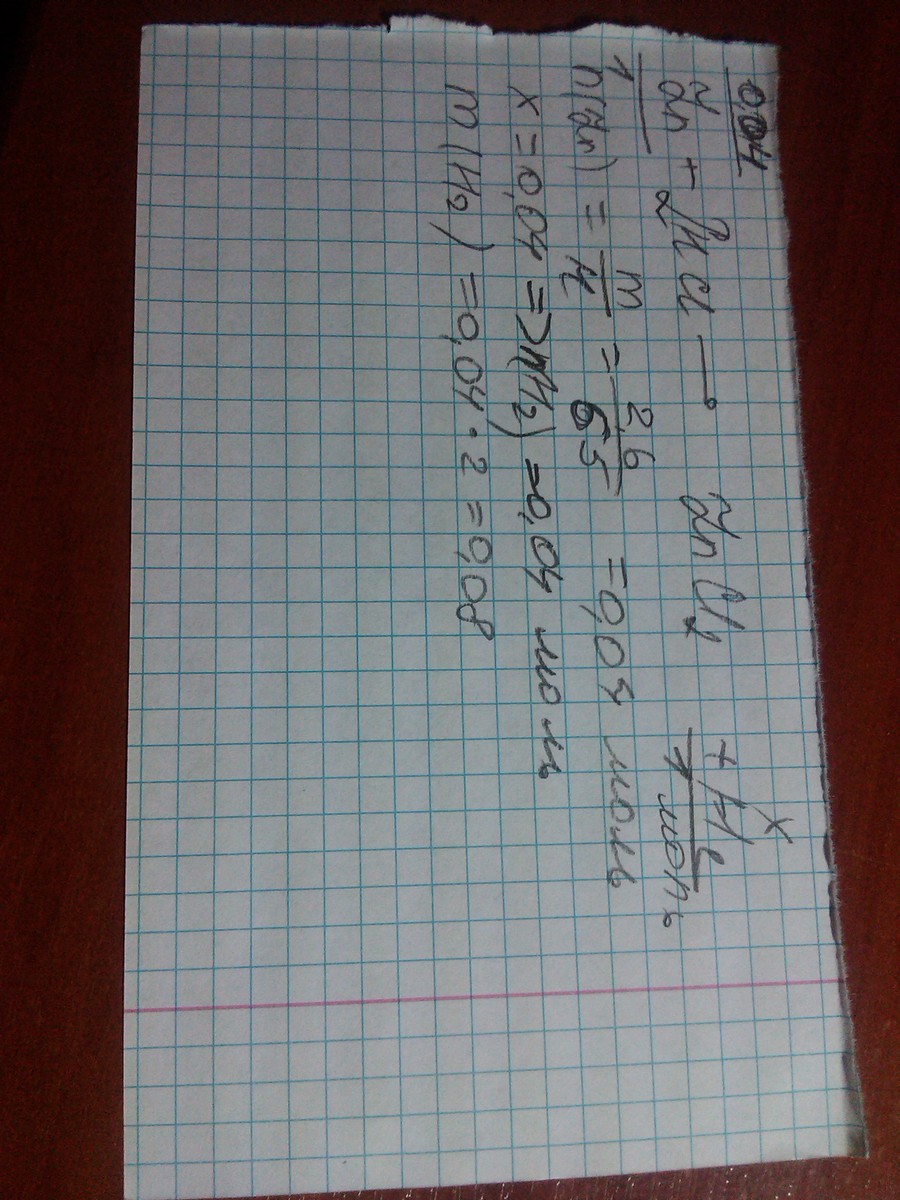 0,04 x
Zn + 2HCl → ZnCl2 + H2
1 1 моль
n(Zn) = m/M = 2,6/65 = 0,04 моль
x = 0,04 => n(H2) = 0,04 моль
m(H2) = 0,04 · 2 = 0,08